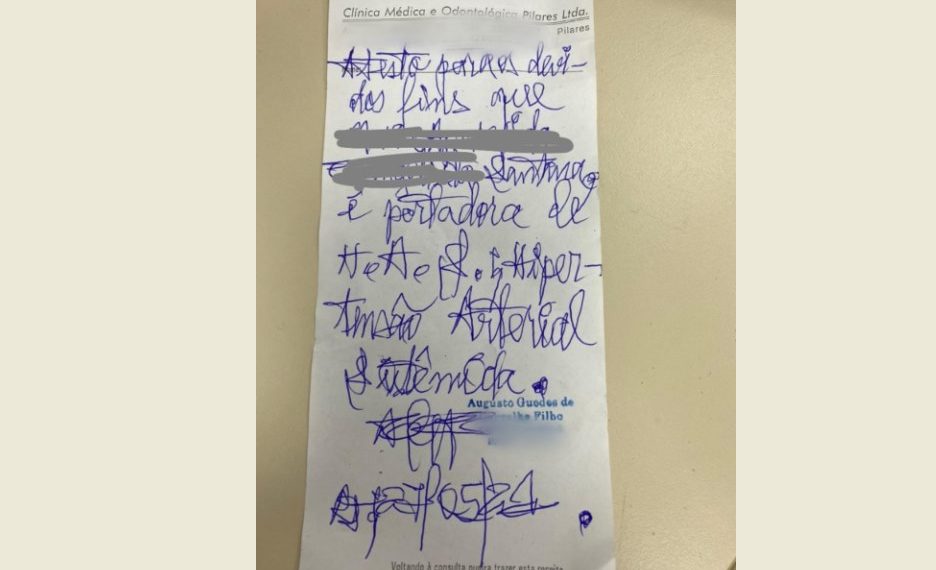 Clínica Médica e Odontológica Pilares Ltda.
Pilares
Atesto para os devi-
dos fins que
Santana,
é portadora de
H.A.S.; Hiper-
tensão Arterial
Sistêmica.
Augusto Guedes de
Filho
27/05/21
Voltando à consulta trazer esta